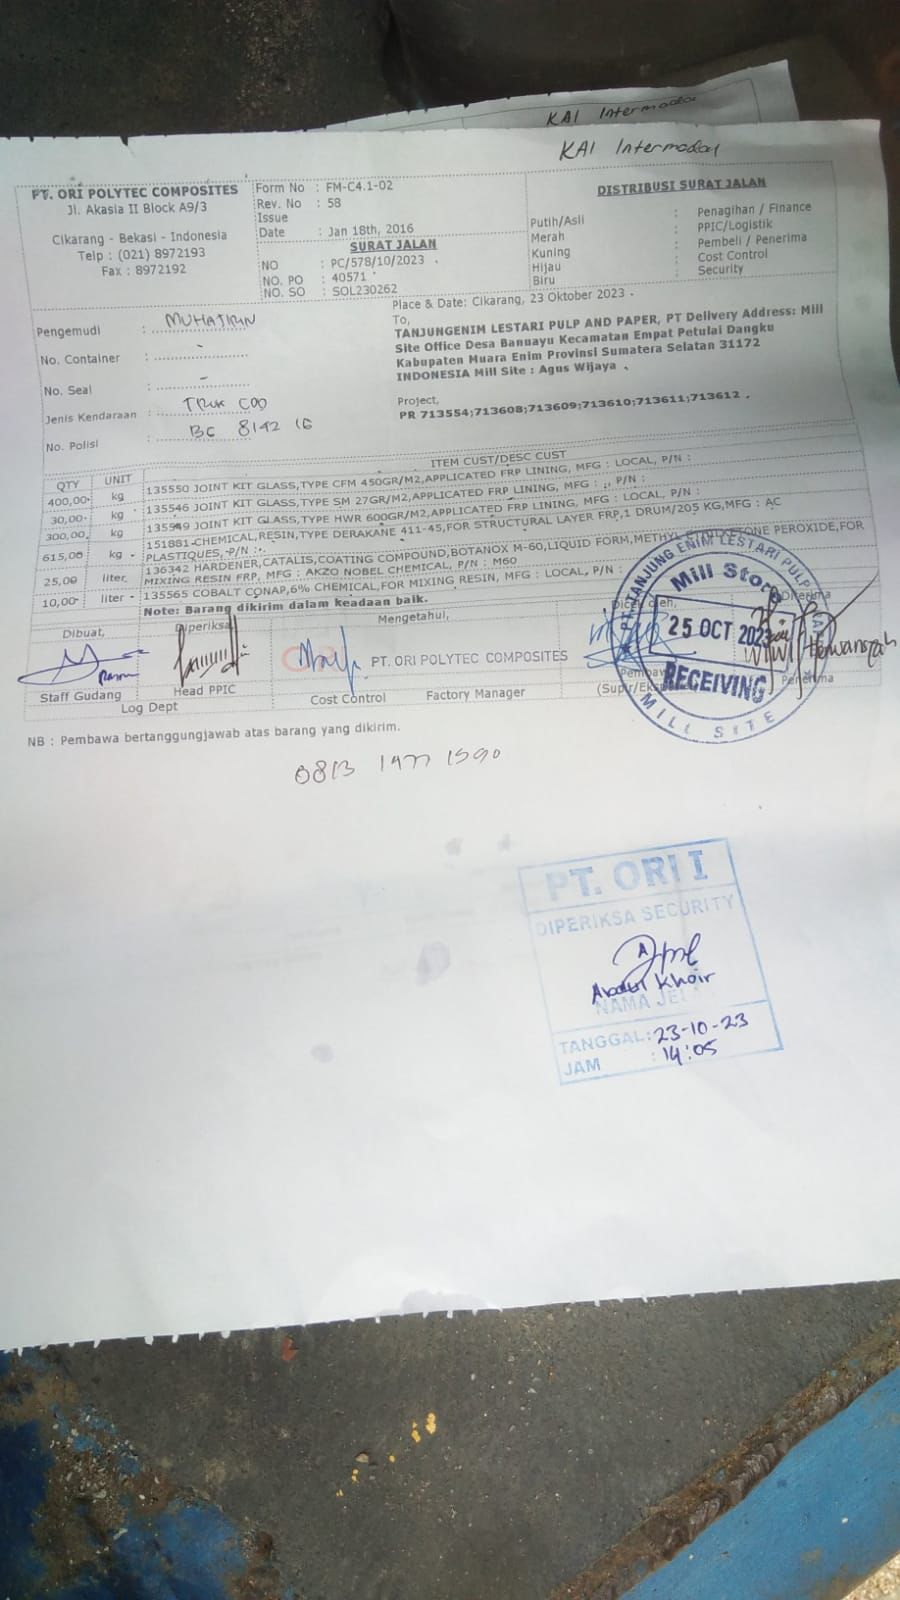 KAI Intermodal
KAI Intermodal
PT. ORI POLYTEC COMPOSITES
Jl. Akasia II Block A9/3
Cikarang - Bekasi - Indonesia
Telp : (021) 8972193
Fax : 8972192
Form No : FM-C4.1-02
Rev. No : 58
Issue
Date : Jan 18th, 2016
SURAT JALAN
NO : PC/578/10/2023
NO. PO : 40571
NO. SO : SOL230262
DISTRIBUSI SURAT JALAN
Putih/Asli : Penagihan / Finance
Merah : PPIC/Logistik
Kuning : Pembeli / Penerima
Hijau : Cost Control
Biru : Security
Pengemudi : MUHAJIRIN
No. Container : -
No. Seal : -
Jenis Kendaraan : TRUK COO
No. Polisi : BG 8142 IG
Place & Date: Cikarang, 23 Oktober 2023 .
To,
TANJUNGENIM LESTARI PULP AND PAPER, PT Delivery Address: Mill
Site Office Desa Banuayu Kecamatan Empat Petulai Dangku
Kabupaten Muara Enim Provinsi Sumatera Selatan 31172
INDONESIA Mill Site : Agus Wijaya
Project,
PR 713554;713608;713609;713610;713611;713612 .
QTY UNIT ITEM CUST/DESC CUST
400,00 kg 135550 JOINT KIT GLASS,TYPE CFM 450GR/M2,APPLICATED FRP LINING, MFG : LOCAL, P/N :
30,00 kg 135546 JOINT KIT GLASS,TYPE SM 27GR/M2,APPLICATED FRP LINING, MFG : ,, P/N :
300,00 kg 135549 JOINT KIT GLASS,TYPE HWR 600GR/M2,APPLICATED FRP LINING, MFG : LOCAL, P/N :
615,00 kg 151881 CHEMICAL,RESIN,TYPE DERAKANE 411-45,FOR STRUCTURAL LAYER FRP,1 DRUM/205 KG,MFG : AC
PLASTIQUES, P/N :
25,00 liter 136342 HARDENER,CATALIS,COATING COMPOUND,BOTANOX M-60,LIQUID FORM,METHYL PEROXIDE,FOR
MIXING RESIN FRP, MFG : AKZO NOBEL CHEMICAL, P/N : M60
10,00 liter 135565 COBALT CONAP,6% CHEMICAL,FOR MIXING RESIN, MFG : LOCAL, P/N :
Note: Barang dikirim dalam keadaan baik.
Dibuat, Diperiksa Mengetahui, Dicek oleh, Diterima
PT. ORI POLYTEC COMPOSITES
Staff Gudang Head PPIC Cost Control Factory Manager
Log Dept
(Supir/ Penerima
PT. TANJUNG ENIM LESTARI PULP
Mill Store
25 OCT 2023
RECEIVING
MILL SITE
Hermansyah
NB : Pembawa bertanggungjawab atas barang yang dikirim.
0813 1477 1590
PT. ORI I
DIPERIKSA SECURITY
Abdul Khoir
NAMA JE
TANGGAL : 23-10-23
JAM : 14:05